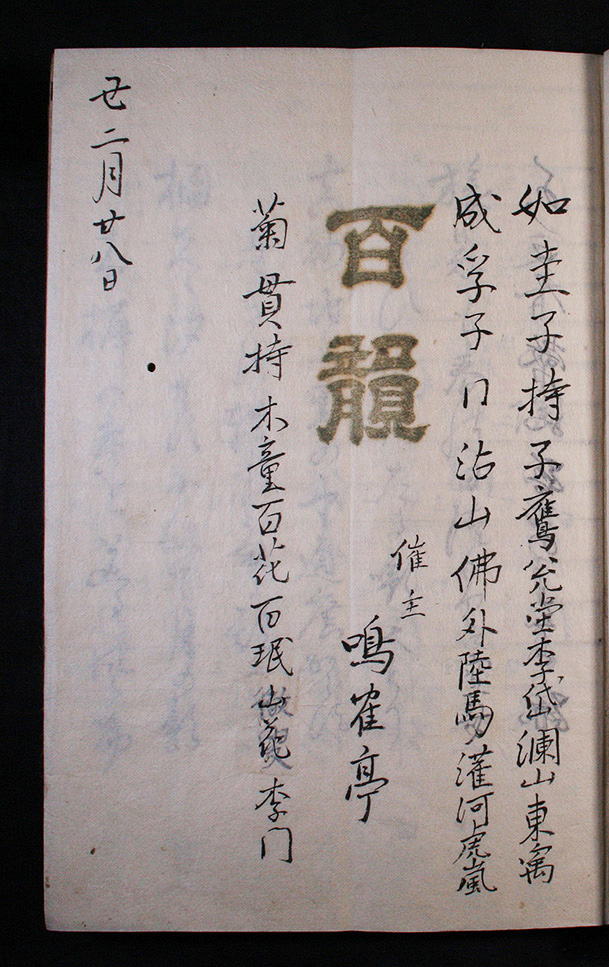 如圭子持子鷹公堂李岱山瀾山東寓
成孚子口沾山佛外陸馬灌河虎嵐
催主
鳴雀亭
百韻
菊貫持木童百花百珉山苑李门
廿二月廿八日